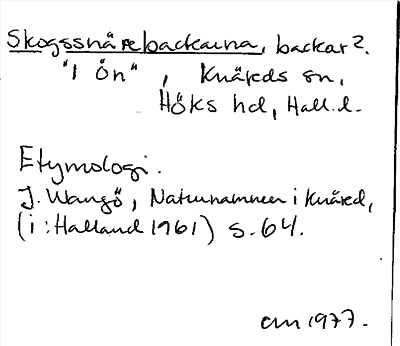 Skogssnärebackarna, backar?.
"I Ön", Knäreds sn,
Höks hd, Hall. l.
Etymologi.
J. Wangö, Naturnamnen i Knäred,
(i: Halland 1961) s. 64.
am 1977.